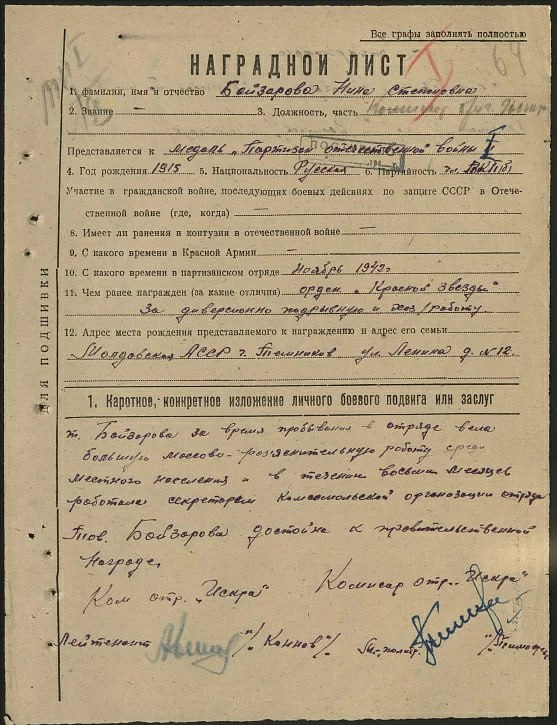 Все графы заполнять полностью
НАГРАДНОЙ ЛИСТ
1. фамилия, имя и отчество Бойзарова Нина Степановна
2. Звание — 3. Должность, часть
Представляется к медаль „Партизан отечественной войны" II
4. Год рождения 1915 5. Национальность Русская 6. Партийность чл. ВКП(б)
Участие в гражданской войне, последующих боевых действиях по защите СССР в Отече-
ственной войне (где, когда) —
8. Имеет ли ранения и контузии в отечественной войне —
9. С какого времени в Красной Армии —
10. С какого времени в партизанском отряде Ноябрь 1942г
11. Чем ранее награжден (за какие отличия) орден „Красной Звезды"
За диверсионно подрывную и хоз/работу.
12. Адрес места рождения представляемого к награждению и адрес его семьи
Молдовская АССР г. Темников ул. Ленина д. №12.
ДЛЯ ПОДШИВКИ
1. Кароткое, конкретное изложение личного боевого подвига или заслуг
т. Бойзарова за время пробывания в отряде вела
большую масово-розяснительную работу среди
местного население и в течении восьми месяцев
работала секретарем Комсомольской организации отряда
Тов. Бойзарова достойна к правительственной
Награде.
Ком отр. „Искра" Комисар отр. „Искра"
Лейтенант /Коннов/